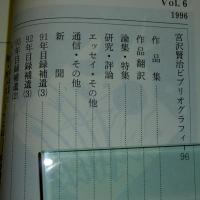 Vol. 6
1996
宮沢賢治ビブリオグラフィー 96
作品集
作品翻訳
論集・特集
研究・評論
エッセイ・その他
通信・その他
新聞
91年目録補遺(3)
92年目録補遺(3)
年目録補遺(2)